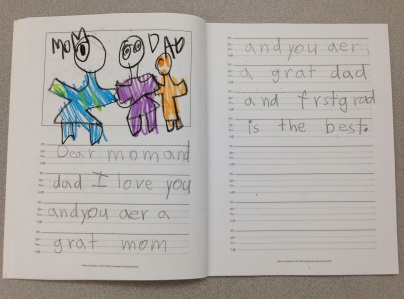 MOM DAD
Dear mom and
dad I love you
and you aer a
grat mom
and you aer
a grat dad
and frstgrad
is the best.